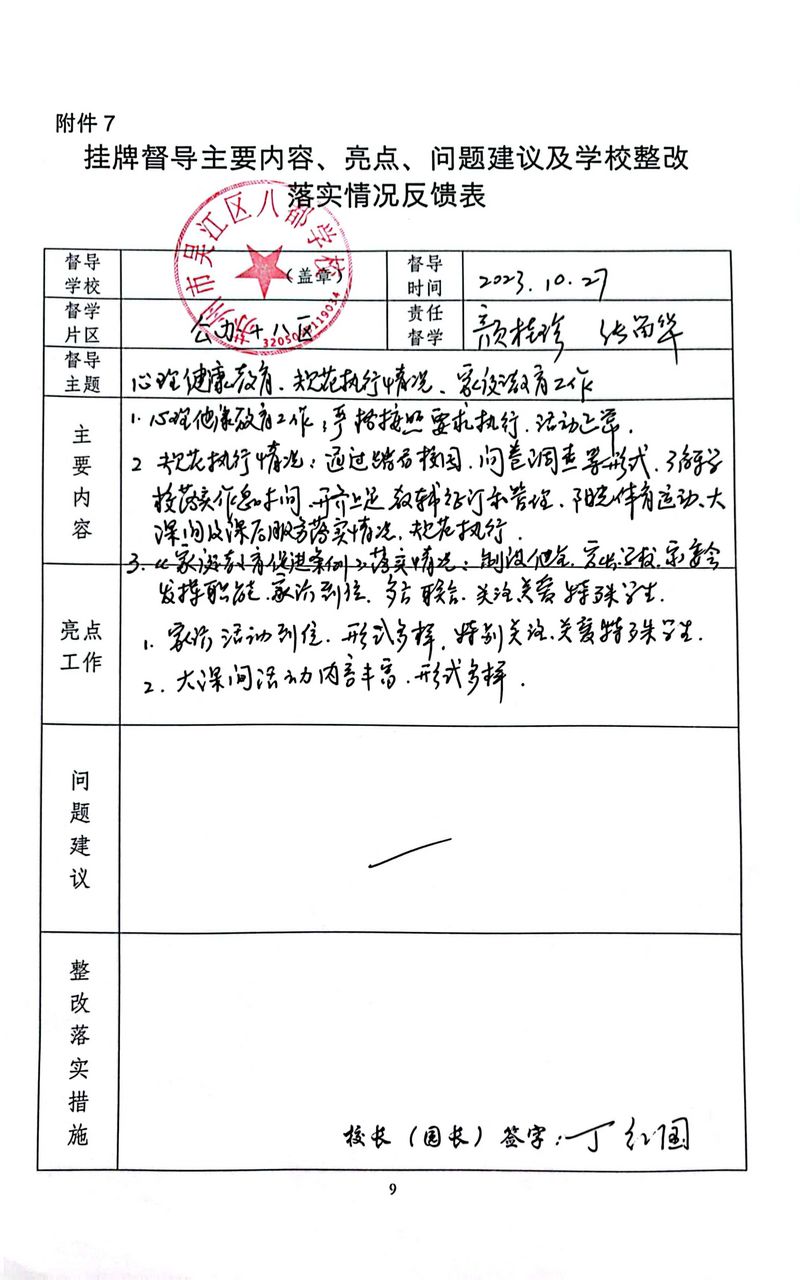 附件7
挂牌督导主要内容、亮点、问题建议及学校整改
落实情况反馈表
苏州市吴江区八都学校
3205091119034
督导学校
（盖章）
督导时间
2023.10.27
督学片区
公办十八区
责任督学
颜桂珍
督导主题
心理健康教育、规范执行情况、家庭教育工作
主要内容
1. 心理健康教育工作：严格按照要求执行、活动正常.
2 规范执行情况：通过踏看校园、问卷调查等形式，了解学
校落实作息时间、开齐上足、教辅征订和管理、阳光体育运动、大
课间及课后服务落实情况，规范执行.
3.《家庭教育促进条例》落实情况：制度健全，家长学校、家委会
发挥职能，家访到位，多方联合，关注关爱特殊学生.
亮点工作
1. 家访活动到位、形式多样，特别关注、关爱特殊学生.
2. 大课间活动内容丰富、形式多样.
问题建议
整改落实措施
校长（园长）签字：丁红国
9